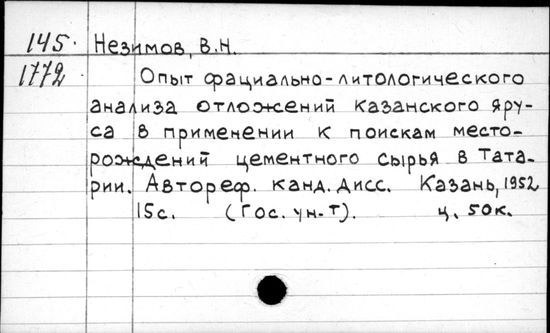 145. Незимов, В.Н.
1772 Опыт фациально-литологического
анализа отложений казанского яру-
са в применении к поискам место-
рождений цементного сырья в Тата-
рии. Автореф. канд. дисс. Казань, 1952
15с. (Гос. ун-т). ц. 50к.